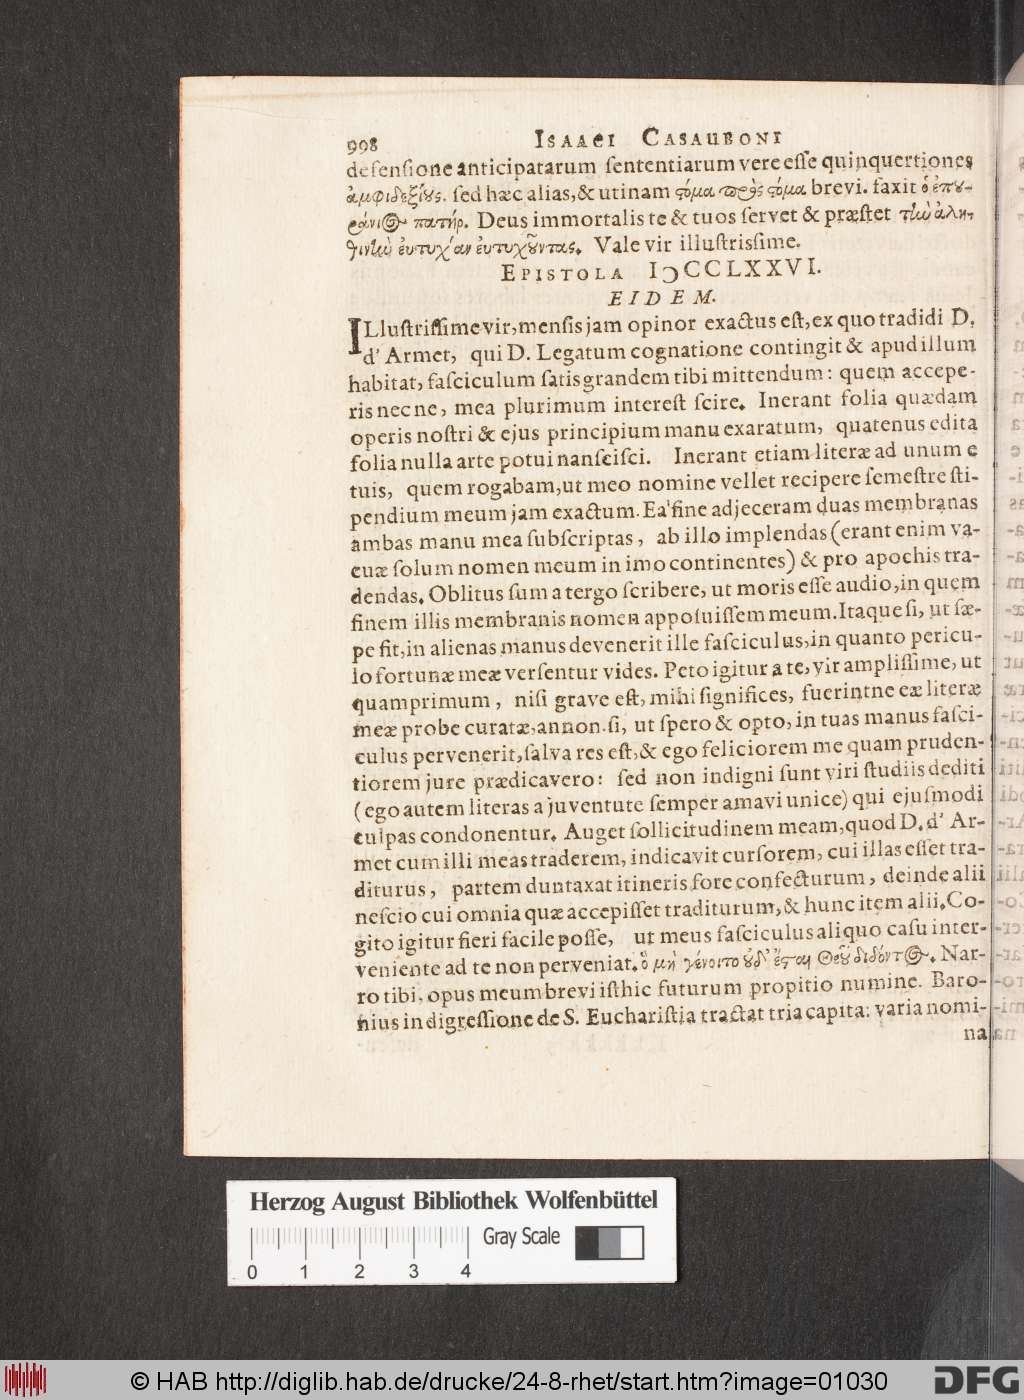 998 ISAACI CASAUBONI
defensione anticipatarum ſententiarum vere eſſe quinquertiones
ἀμφιδεξίους. ſed hæc alias, & utinam ςόμα πρὸς ςόμα brevi. faxit ὁ ἐπου-
ράνιος πατήρ. Deus immortalis te & tuos ſervet & præſtet τὴν ἀλη-
θινὴν ἐυτυχίαν ἐυτυχοῦντας. Vale vir illuſtriſſime.
EPISTOLA IↃCCLXXVI.
EIDEM.
ILluſtriſſime vir, menſis jam opinor exactus eſt, ex quo tradidi D.
d' Armet, qui D. Legatum cognatione contingit & apud illum
habitat, faſciculum ſatis grandem tibi mittendum: quem accepe-
ris nec ne, mea plurimum intereſt ſcire. Inerant folia quædam
operis noſtri & ejus principium manu exaratum, quatenus edita
folia nulla arte potui nanſciſci. Inerant etiam literæ ad unum e
tuis, quem rogabam, ut meo nomine vellet recipere ſemeſtre ſti-
pendium meum jam exactum. Ea' fine adjeceram duas membranas
ambas manu mea ſubſcriptas, ab illo implendas (erant enim va-
cuæ ſolum nomen meum in imo continentes) & pro apochis tra-
dendas. Oblitus ſum a tergo ſcribere, ut moris eſſe audio, in quem
finem illis membranis nomen appoſuiſſem meum. Itaque ſi, ut ſæ-
pe fit, in alienas manus devenerit ille faſciculus, in quanto pericu-
lo fortunæ meæ verſentur vides. Peto igitur a te, vir ampliſſime, ut
quamprimum, niſi grave eſt, mihi ſignifices, fuerintne eæ literæ
meæ probe curatæ, annon. ſi, ut ſpero & opto, in tuas manus faſci-
culus pervenerit, ſalva res eſt, & ego feliciorem me quam pruden-
tiorem jure prædicavero: ſed non indigni ſunt viri ſtudiis dediti
(ego autem literas a juventute ſemper amavi unice) qui ejuſmodi
culpas condonentur. Auget ſollicitudinem meam, quod D. d' Ar-
met cum illi meas traderem, indicavit curſorem, cui illas eſſet tra-
diturus, partem duntaxat itineris fore confecturum, deinde alii
neſcio cui omnia quæ accepiſſet traditurum, & hunc item alii. Co-
gito igitur fieri facile poſſe, ut meus faſciculus aliquo caſu inter-
veniente ad te non perveniat. ὃ μὴ γένοιτο οὐδ' ἔςαι Θεοῦ διδόντος. Nar-
ro tibi, opus meum brevi iſthic futurum propitio numine. Baro-
nius in digreſſione de S. Euchariſtia tractat tria capita: varia nomi-
na
Herzog August Bibliothek Wolfenbüttel
0 1 2 3 4
Gray Scale
© HAB http://diglib.hab.de/drucke/24-8-rhet/start.htm?image=01030
DFG